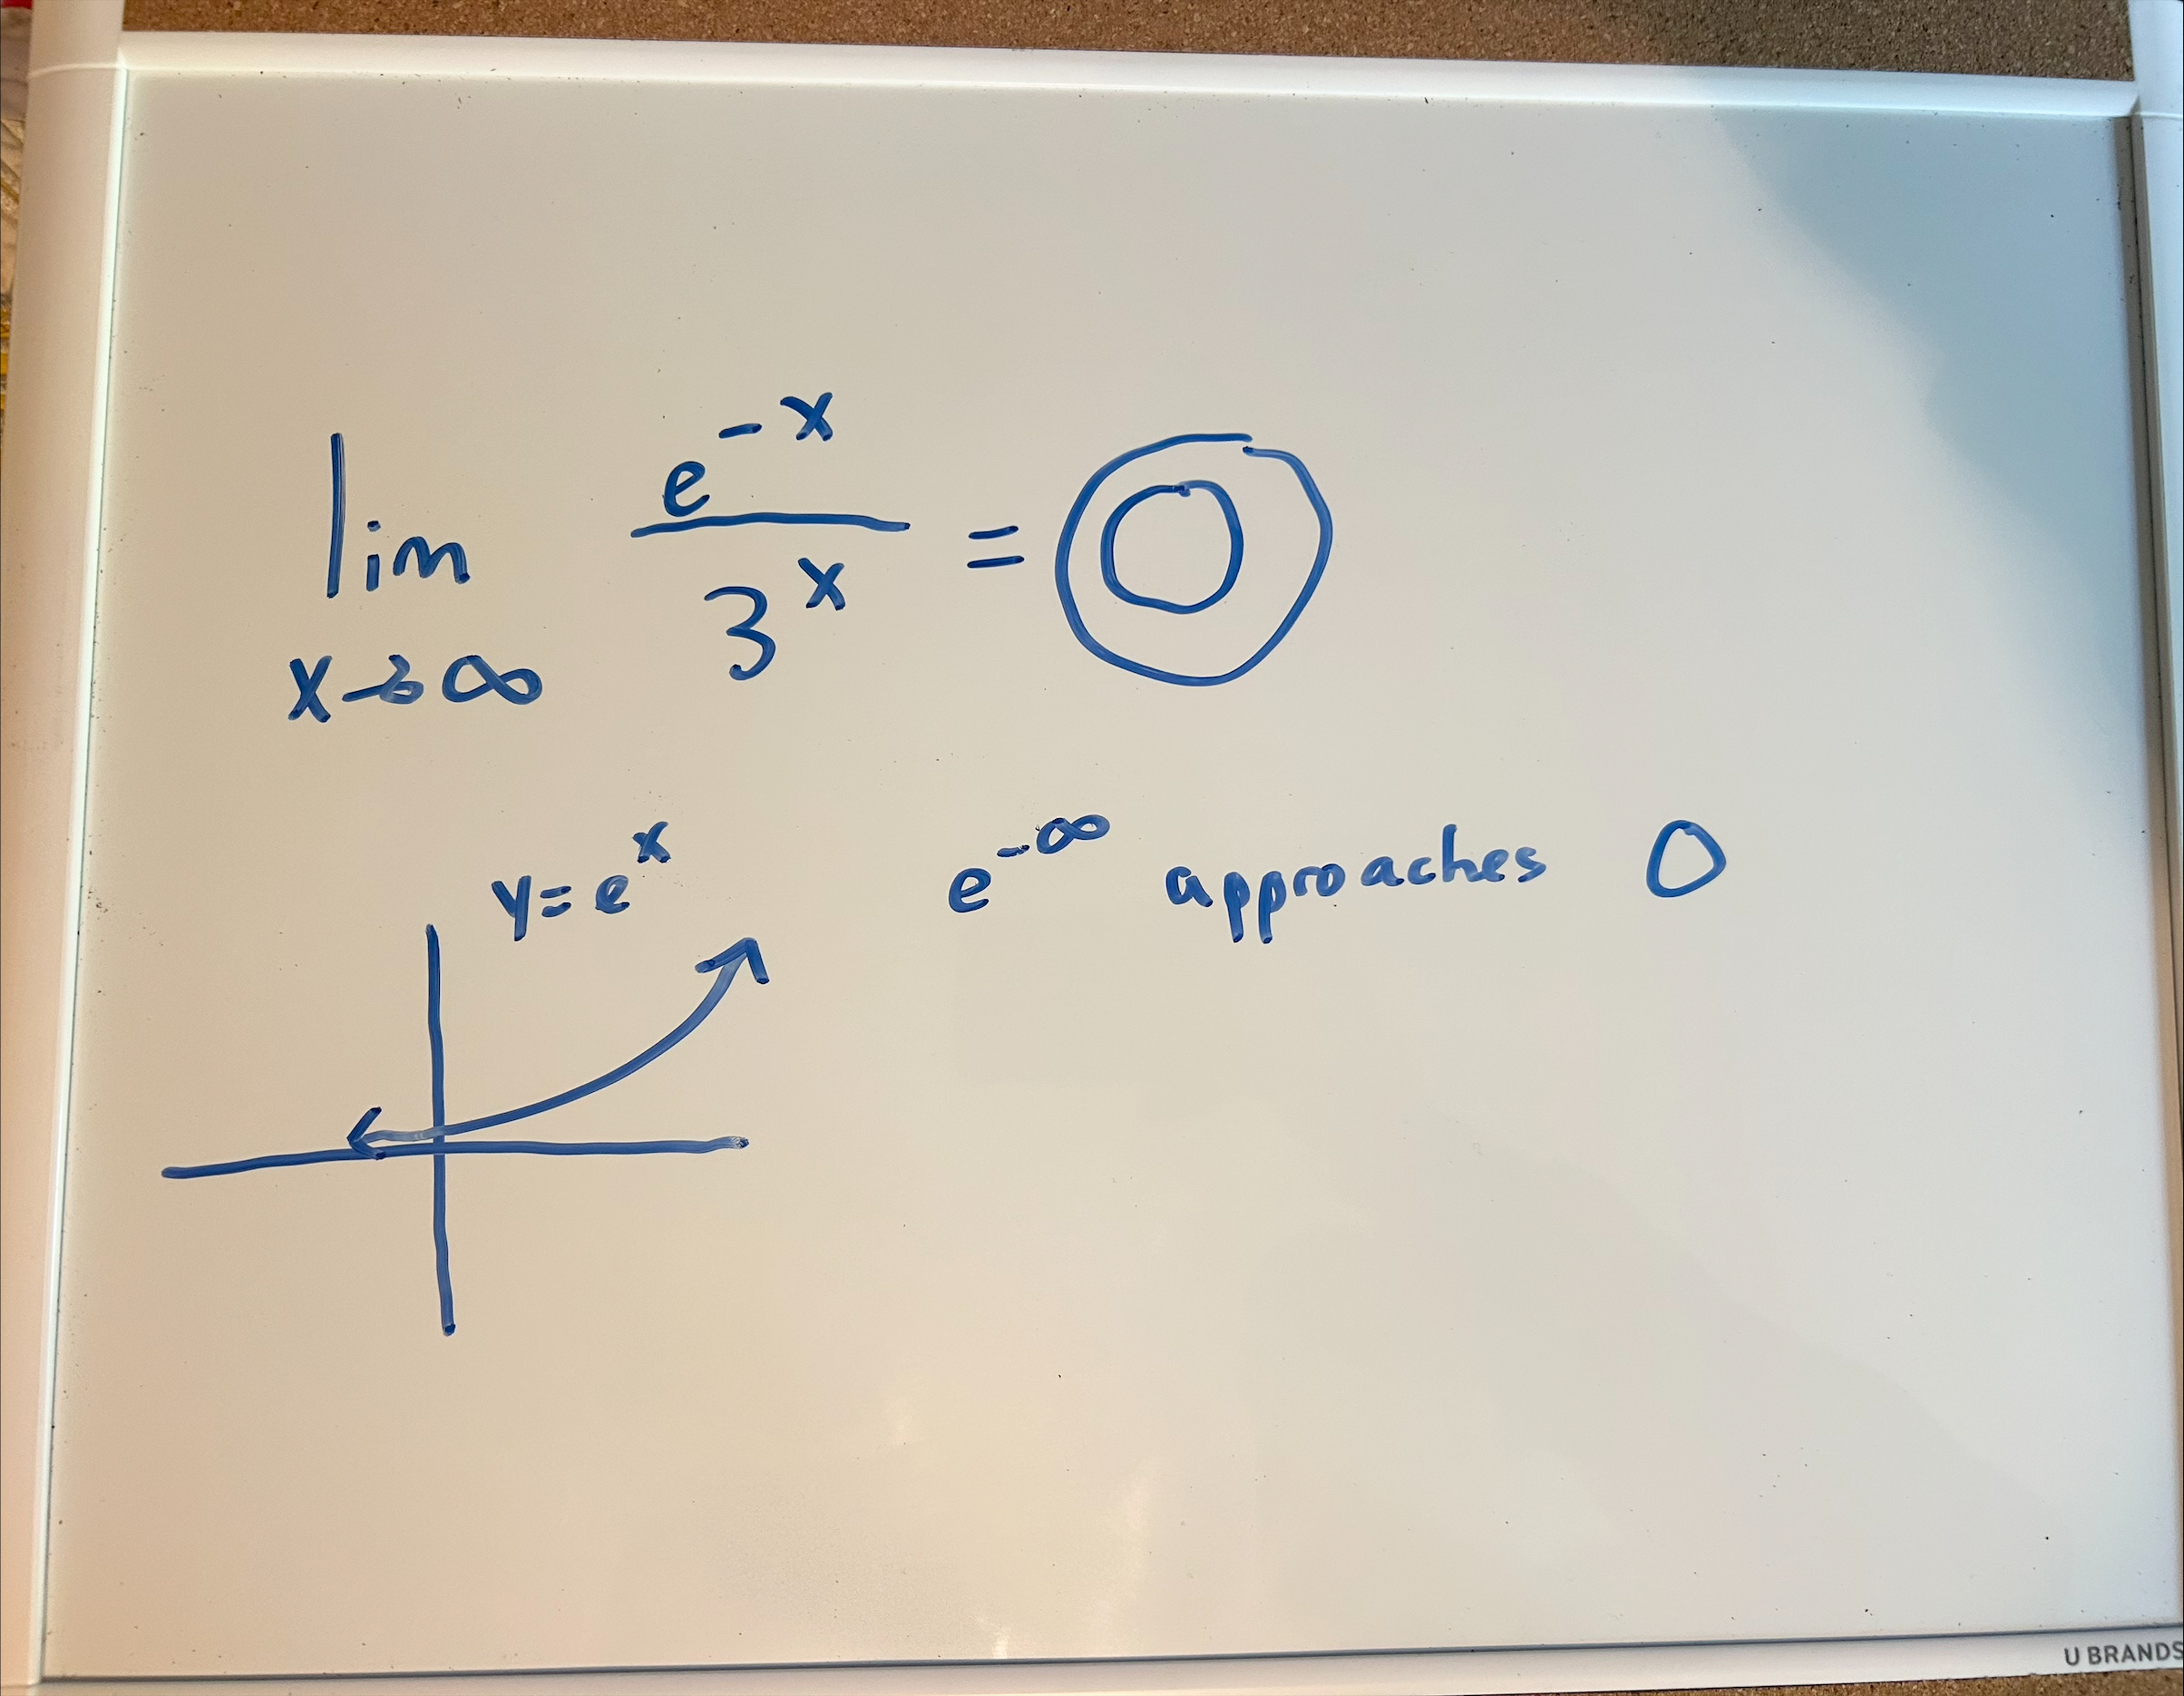 lim x→∞ e^{-x} / 3^x = 0
y = e^x
e^{-∞} approaches 0
U BRANDS